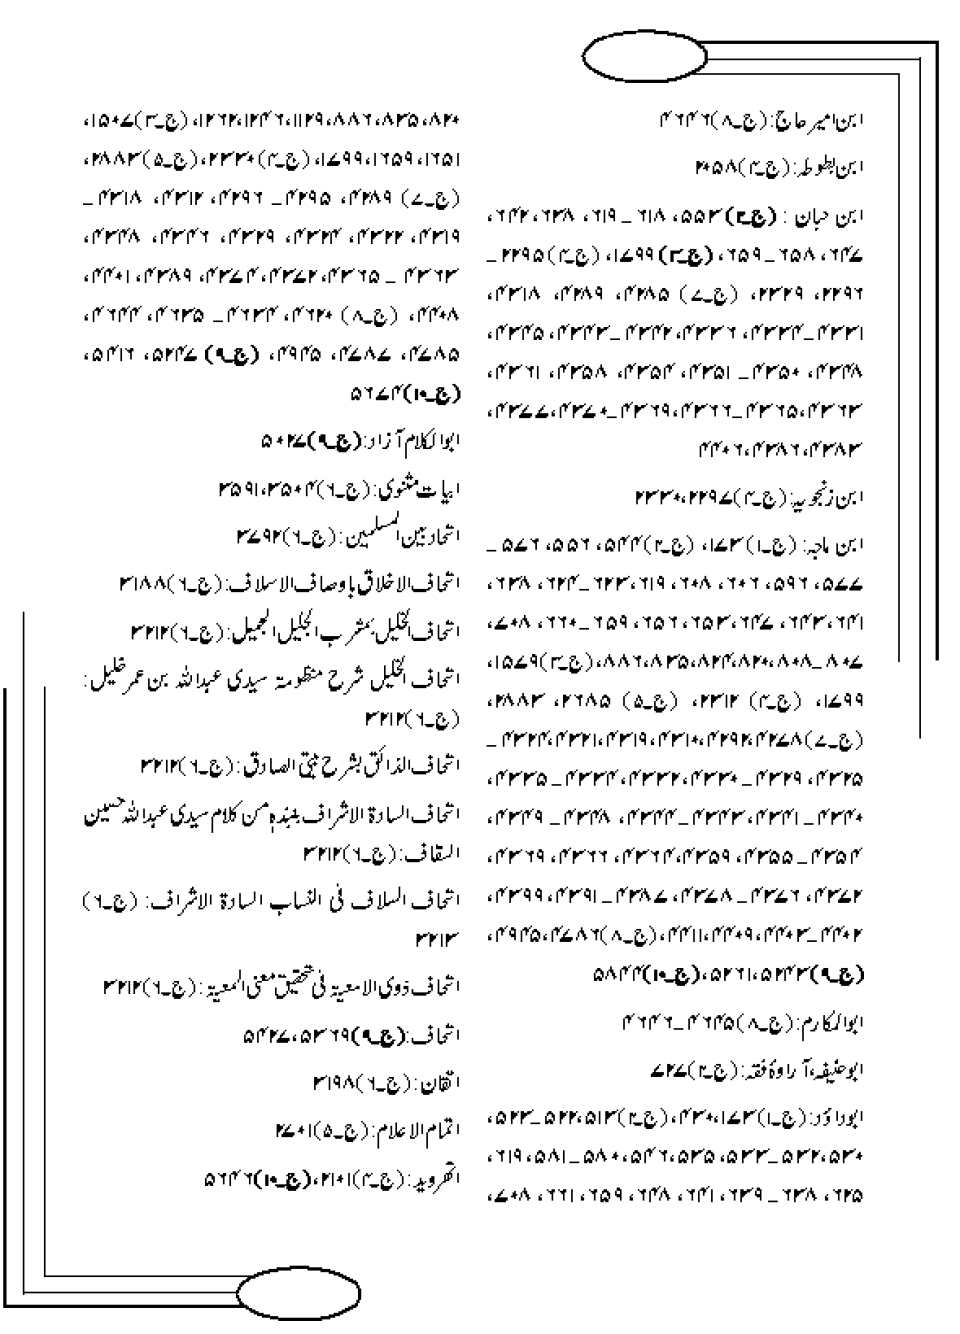 ابن امیر حاج: (ج_۸)۴۶۴۶
ابن بطوطہ: (ج_۴)۲۰۵۸
ابن حبان : (ج_۲)۵۵۳، ۶۱۸ _ ۶۱۹، ۶۳۸، ۶۴۲،
۶۴۷، ۶۵۸ _ ۶۵۹، (ج_۳)۱۷۹۹، (ج_۴)۲۲۹۵ _
۲۲۹۶، ۲۳۲۹، (ج_۷) ۴۲۸۵، ۴۲۸۹، ۴۳۱۸،
۴۳۳۱_۴۳۳۴، ۴۳۳۶، ۴۳۴۲_۴۳۴۳، ۴۳۴۵،
۴۳۴۸، ۴۳۵۰ _ ۴۳۵۱، ۴۳۵۴، ۴۳۵۸، ۴۳۶۱،
۴۳۶۳، ۴۳۶۵_۴۳۶۶، ۴۳۶۹_۴۳۷۰، ۴۳۷۷،
۴۳۸۳، ۴۳۸۶، ۴۴۰۶
ابن زنجویہ: (ج_۴)۲۲۹۷، ۲۳۳۰
ابن ماجہ: (ج_۱)۱۷۳، (ج_۲)۵۴۴، ۵۵۶، ۵۷۶ _
۵۷۷، ۵۹۶، ۶۰۲، ۶۰۸، ۶۱۹، ۶۲۳_۶۲۴، ۶۳۸،
۶۴۱، ۶۴۳، ۶۴۷، ۶۵۳، ۶۵۶، ۶۵۹ _ ۶۶۰، ۷۰۸،
۸۰۷_۸۰۸، ۸۲۰، ۸۲۴، ۸۳۵، ۸۸۶، (ج_۳)۱۵۷۹،
۱۷۹۹، (ج_۴) ۲۳۱۲، (ج_۵) ۲۶۸۵، ۲۸۸۳،
(ج_۷)۴۲۷۸، ۴۲۹۲، ۴۳۱۰، ۴۳۱۹، ۴۳۲۱، ۴۳۲۴ _
۴۳۲۵، ۴۳۲۹ _ ۴۳۳۰، ۴۳۳۲، ۴۳۳۴ _ ۴۳۳۵،
۴۳۴۰ _ ۴۳۴۱، ۴۳۴۳_۴۳۴۴، ۴۳۴۸ _ ۴۳۴۹،
۴۳۵۴ _ ۴۳۵۵، ۴۳۵۹، ۴۳۶۴، ۴۳۶۶، ۴۳۶۹،
۴۳۷۲، ۴۳۷۶ _ ۴۳۷۸، ۴۳۸۷ _ ۴۳۹۱، ۴۳۹۹،
۴۴۰۲_۴۴۰۳، ۴۴۰۹، ۴۴۱۱، (ج_۸)۴۷۸۶، ۴۹۴۵،
(ج_۹)۵۲۴۳، ۵۲۶۱، (ج_۱۰)۵۸۴۴
ابوالمکارم: (ج_۸)۴۶۴۵_۴۶۴۶
ابوحنیفہ، آراوۂ فقہ: (ج_۲)۷۲۷
ابوداؤد: (ج_۱)۱۷۳، ۴۳۰، (ج_۲)۵۱۳، ۵۲۲_۵۲۳،
۵۳۰، ۵۳۲_۵۳۳، ۵۳۵، ۵۴۶، ۵۸۰ _ ۵۸۱، ۶۱۹،
۶۲۵، ۶۳۸ _ ۶۳۹، ۶۴۱، ۶۴۸، ۶۵۹، ۶۶۱، ۷۰۸،
۸۲۰، ۸۳۵، ۸۸۶، ۱۱۲۹، ۱۲۴۶، ۱۲۶۲، (ج_۳)۱۵۰۷،
۱۶۵۱، ۱۶۵۹، ۱۷۹۹، (ج_۴)۲۳۳۰، (ج_۵)۲۸۸۳،
(ج_۷) ۴۲۸۹، ۴۲۹۵ _ ۴۲۹۶، ۴۳۱۲، ۴۳۱۸ _
۴۳۱۹، ۴۳۲۲، ۴۳۲۴، ۴۳۲۹، ۴۳۴۶، ۴۳۴۸،
۴۳۶۳ _ ۴۳۶۵، ۴۳۷۲، ۴۳۷۴، ۴۳۸۹، ۴۴۰۱،
۴۴۰۸، (ج_۸) ۴۶۲۰، ۴۶۳۴_ ۴۶۳۵، ۴۶۴۴،
۴۷۸۵، ۴۷۸۷، ۴۹۴۵، (ج_۹) ۵۲۴۷، ۵۴۱۶،
(ج_۱۰)۵۶۷۴
ابوالکلام آزاد: (ج_۹)۵۰۲۷
ابیات مثنوی: (ج_۶)۳۵۰۴، ۳۵۹۱
اتحاد بین المسلمین: (ج_۶)۳۷۹۲
اتحاف الاخلاق باوصاف الاسلاف: (ج_۶)۳۱۸۸
اتحاف الخلیل بمشرب الجلیل الجمیل: (ج_۶)۳۲۱۲
اتحاف الخلیل شرح منظومۃ سیدی عبداللہ بن عمر خلیل:
(ج_۶)۳۲۱۲
اتحاف الذائق بشرح بیتی الصادق: (ج_۶)۳۲۱۲
اتحاف السادۃ الاشراف بنبذہ من کلام سیدی عبداللہ حسین
السقاف: (ج_۶)۳۲۱۲
اتحاف السلاف فی النساب السادۃ الاشراف: (ج_۶)
۳۲۱۳
اتحاف ذوی الامعیۃ فی تحقیق معنی المعیۃ: (ج_۶)۳۲۱۲
اتحاف: (ج_۹)۵۳۶۹، ۵۴۲۷
اتقان: (ج_۶)۳۱۹۸
اتمام الاعلام: (ج_۵)۲۷۰۱
اتھروید: (ج_۴)۲۱۰۱، (ج_۱۰)۵۶۴۶